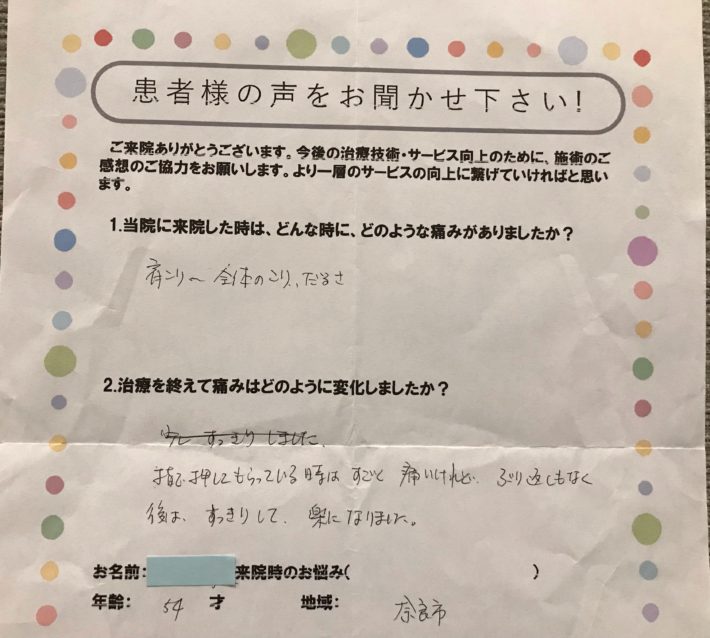 患者様の声をお聞かせ下さい!
ご来院ありがとうございます。今後の治療技術・サービス向上のために、施術のご
感想のご協力をお願いします。より一層のサービスの向上に繋げていければと思い
ます。
1.当院に来院した時は、どんな時に、どのような痛みがありましたか?
肩こり〜 全体のこり、だるさ
2.治療を終えて痛みはどのように変化しましたか?
少し すっきりしました、
指で押してもらっている時は すごく 痛いけれど、ぶり返しもなく
後は、すっきりして、楽になりました。
お名前: 来院時のお悩み( )
年齢: 54 才 地域: 奈良市